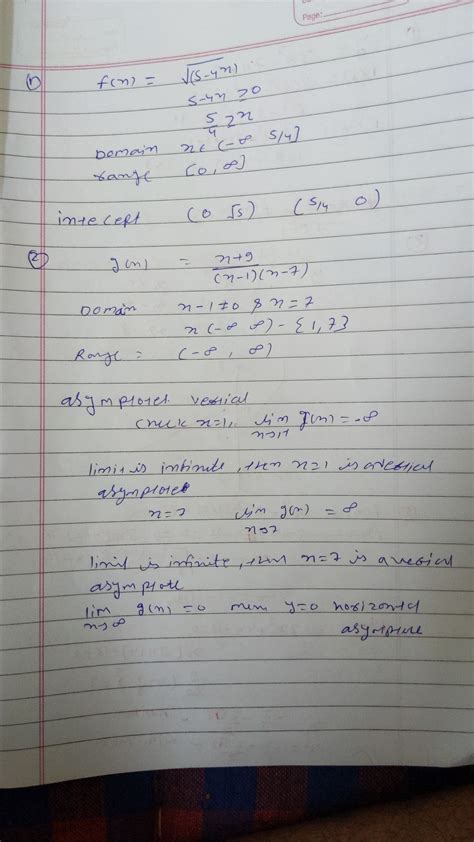 Page:
1) f(n) = √(5-4n)
5-4n ≥0
5/4 ≥n
Domain n ϵ (-∞ 5/4]
range [0, ∞]
intecept (0 √5) (5/4 0)
2) g(n) = n+9/(n-1)(n-7)
Domain n-1≠0 & n=7
n(-∞ ∞) - {1,7}
Range = (-∞, ∞)
asymptotes vertical
Check n=1, lim n→1+ g(n) = -∞
limit is infinite, then n=1 is a vertical
asymptote
n=7 lim n→7 g(n) = ∞
limit is infinite, then n=7 is a vertical
asymptote
lim n→∞ g(n) =0 mem y=0 horizontal
asymptote